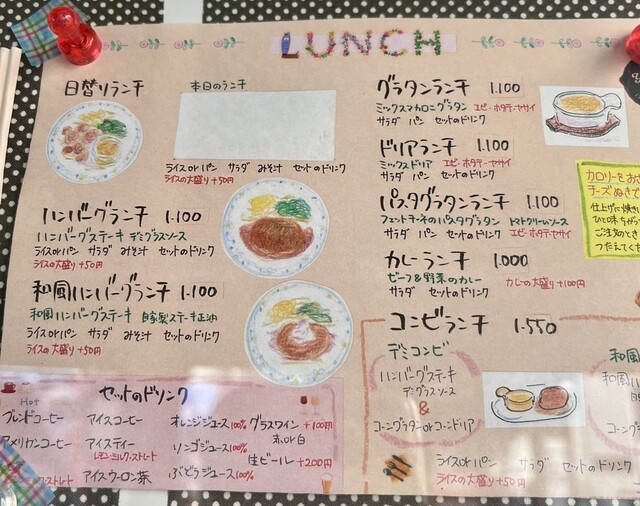 LUNCH
日替りランチ
本日のランチ
ライスorパン サラダ みそ汁 セットのドリンク
ライスの大盛り+50円
ハンバーグランチ 1.100
ハンバーグステーキ デミグラスソース
ライスorパン サラダ みそ汁 セットのドリンク
ライスの大盛り+50円
和風ハンバーグランチ 1.100
和風ハンバーグステーキ 自家製ステーキ正油
ライスorパン サラダ みそ汁 セットのドリンク
ライスの大盛り+50円
グラタンランチ 1.100
ミックスマカロニグラタン エビ・ホタテ・ヤサイ
サラダ パン セットのドリンク
ドリアランチ 1.100
ミックスドリア エビ・ホタテ・ヤサイ
サラダ パン セットのドリンク
パスタグラタンランチ 1.100
フェットチーネのパスタグラタン トマトクリームソース
サラダ パン セットのドリンク エビ・ホタテ・ヤサイ
カレーランチ 1.000
ビーフ&野菜のカレー カレーの大盛り+100円
サラダ セットのドリンク
カロリーをおさ
チーズぬきで
仕上げに焼き
ひと味ちが
ご注文のとき
つたえてくだ
コンビランチ 1.550
デミコンビ
ハンバーグステーキ
デミグラスソース
&
コーングラタンorコーンドリア
ライスorパン サラダ セットのドリンク
ライスの大盛り+50円
和風
和風ハン
コーングラ
セットのドリンク
Hot
ブレンドコーヒー
アメリカンコーヒー
ストレート
アイスコーヒー
アイスティー
レモン・ミルク・ストレート
アイスウーロン茶
オレンジジュース100%
リンゴジュース100%
ぶどうジュース100%
グラスワイン +100円
赤or白
生ビール +200円